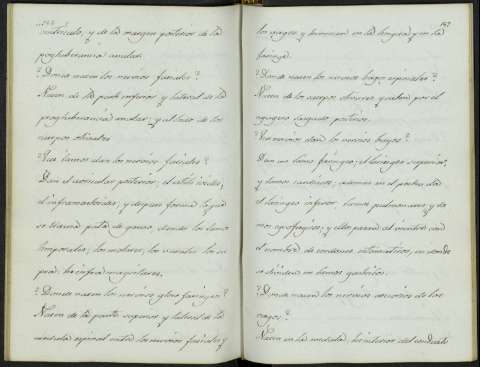 ventriculo, y de la margen posterior de la
protuberancia anular.
? Donde nacen los nervios faciales?
Nacen de la parte inferior y lateral de la
protuberancia anular, y al lado de los
cuerpos olivales
? Que ramos dan los nervios faciales?
Dan el auricular posterior, el estilo ioideo,
el inframastoideo, y despues forma lo que
se llama pata de ganso, donde los ramos
temporales, los molares, los bucales los su
pra, he infra maxilares.
? Donde nacen los nervios gloso faringeo?
Nacen de la parte superior y lateral de la
medula espinal entre los nervios faciales y
157
los vagos y terminan en la lengua y en la
faringe.
? Donde nacen los nervios vagos espinales?
Nacen de los cuerpos olivares y salen por el
agugero rasgado posterior.
? Que nervios dan los nervios vagos?
Dan un ramo faringeo, el laringeo superior,
y ramos cardiacos, ademas en el pecho da
el laringeo inferior, ramos pulmonares, y ra
mos esofagicos, y
el nombre de cordones estomaticos, en donde
se dividen en ramos gastricos.
? Donde nacen los nervios acesorios de los
vagos?
Nacen en la medula, he interior del conducto